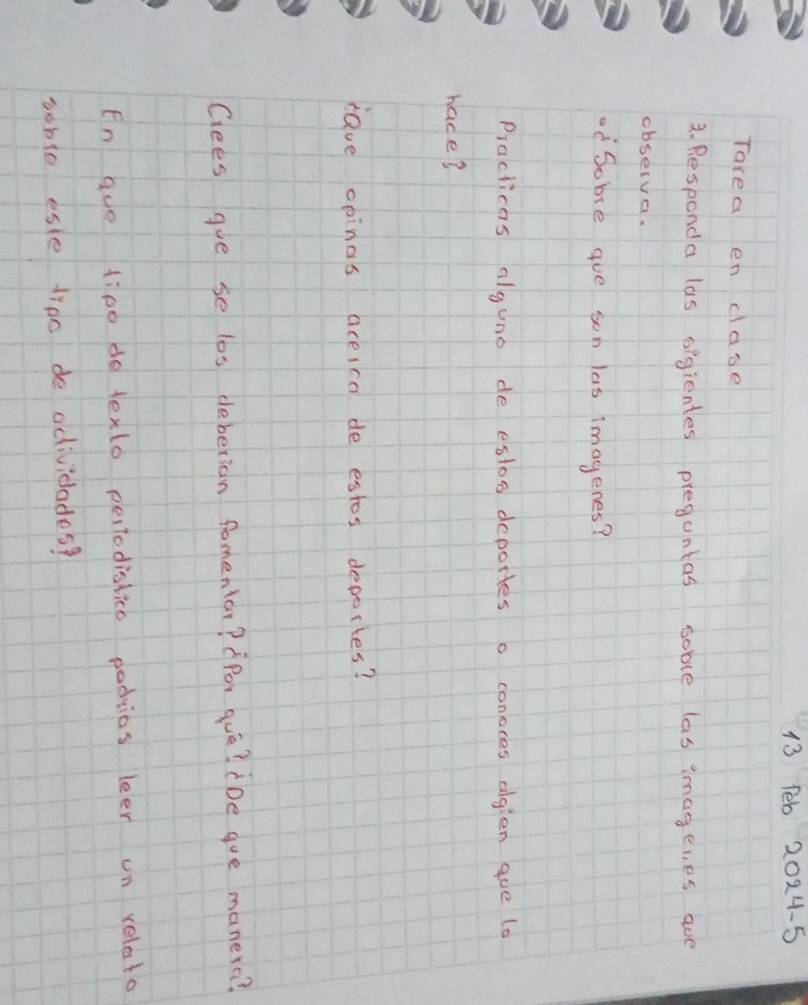 13 feb 2024-5
Tarea en clase
3. Responda las sigientes preguntas sobre las imagenes que
observa.
• ¿Sobre que son las imagenes?
Practicas alguno de estos deportes o conoces algien que lo
hace?
¿Que opinas acerca de estos deportes?
Crees que se los deberian fomentar? ¿Por qué? ¿De que manera?
En que tipo de texto periodistico podrias leer un relato
sobre este tipo de actividades?